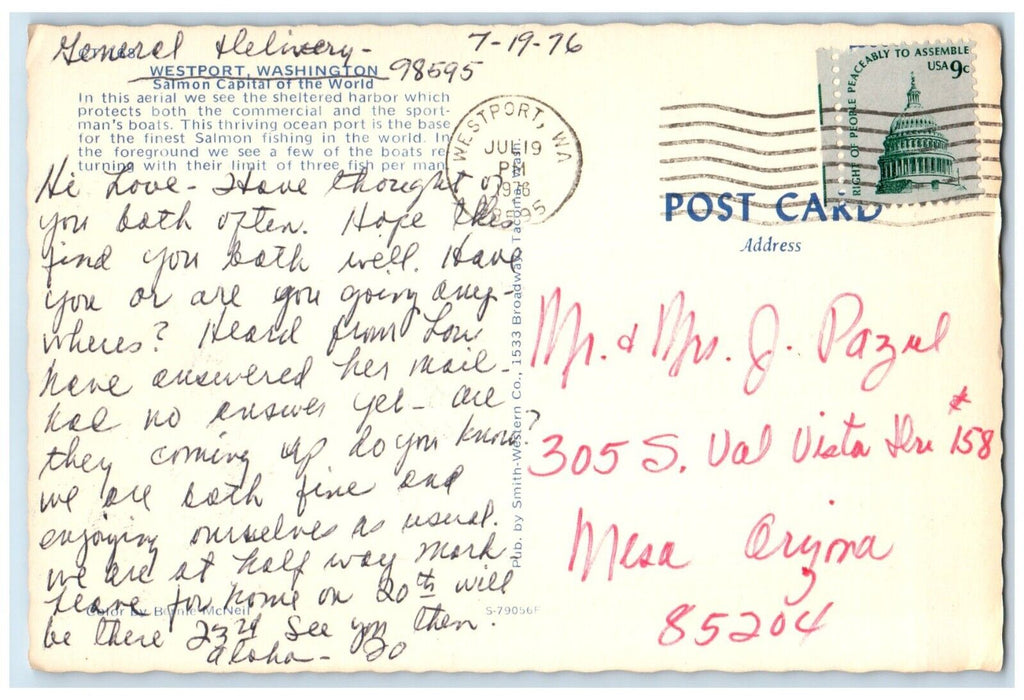 General Delivery - 7-19-76
WESTPORT, WASHINGTON 98595
Salmon Capital of the World
In this aerial we see the sheltered harbor which
protects both the commercial and the sport-
man's boats. This thriving ocean port is the base
for the finest Salmon fishing in the world. In
the foreground we see a few of the boats re
turning with their limit of three fish per man
Hi Love - Have thought of
you both often. Hope this
find you both well. Have
you or are you going any-
wheres? Heard from Lou
have answered her mail -
had no answer yet - are
they coming up do you know?
we are both fine and
enjoying ourselves as usual.
we are at half way mark
leave for home on 20th will
be there 23rd See you then.
aloha -
Color by McNeil
S-79056F
Pub. by Smith-Western Co., 1533 Broadway, Tacoma, Wash.
WESTPORT, WA
JUL 19
PM
1976
98595
RIGHT OF PEOPLE PEACEABLY TO ASSEMBLE
USA 9c
POST CARD
Address
Mr. & Mrs. J. Pazul
305 S. Val Vista Dr. #158
Mesa Arizona
85204